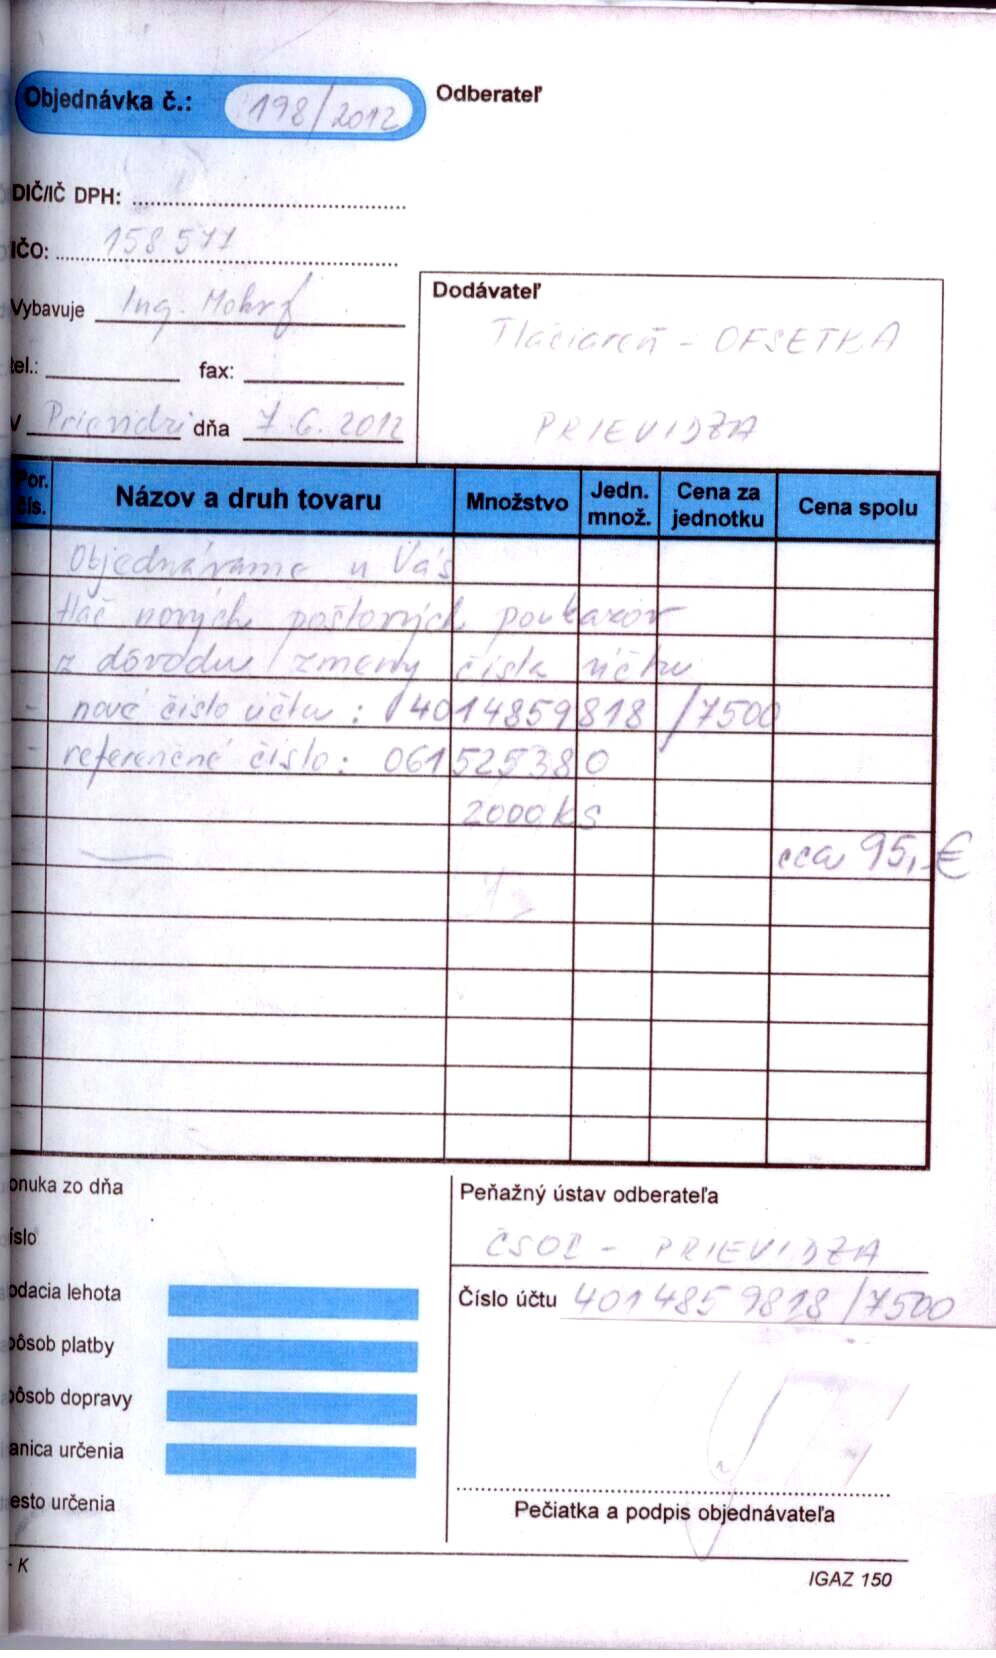 Objednávka č.: 198/2012
Odberateľ
DIČ/IČ DPH:
IČO: 158 577
Vybavuje Ing.
tel.: fax:
V Prievidzi dňa 7.6.2012
Dodávateľ
Tlačiareň - OFSETKA
PRIEVIDZA
Por. čís. Názov a druh tovaru Množstvo Jedn. množ. Cena za jednotku Cena spolu
Objednávame u Vás
tlač nových poštových poukazov
z dôvodu zmeny čísla účtu
- nové číslo účtu: 4014859818 /7500
- referenčné číslo: 061525380
2000 ks
cca 95,-€
onuka zo dňa
íslo
odacia lehota
pôsob platby
pôsob dopravy
anica určenia
esto určenia
Peňažný ústav odberateľa
ČSOB - PRIEVIDZA
Číslo účtu 4014859818/7500
Pečiatka a podpis objednávateľa
- K
IGAZ 150